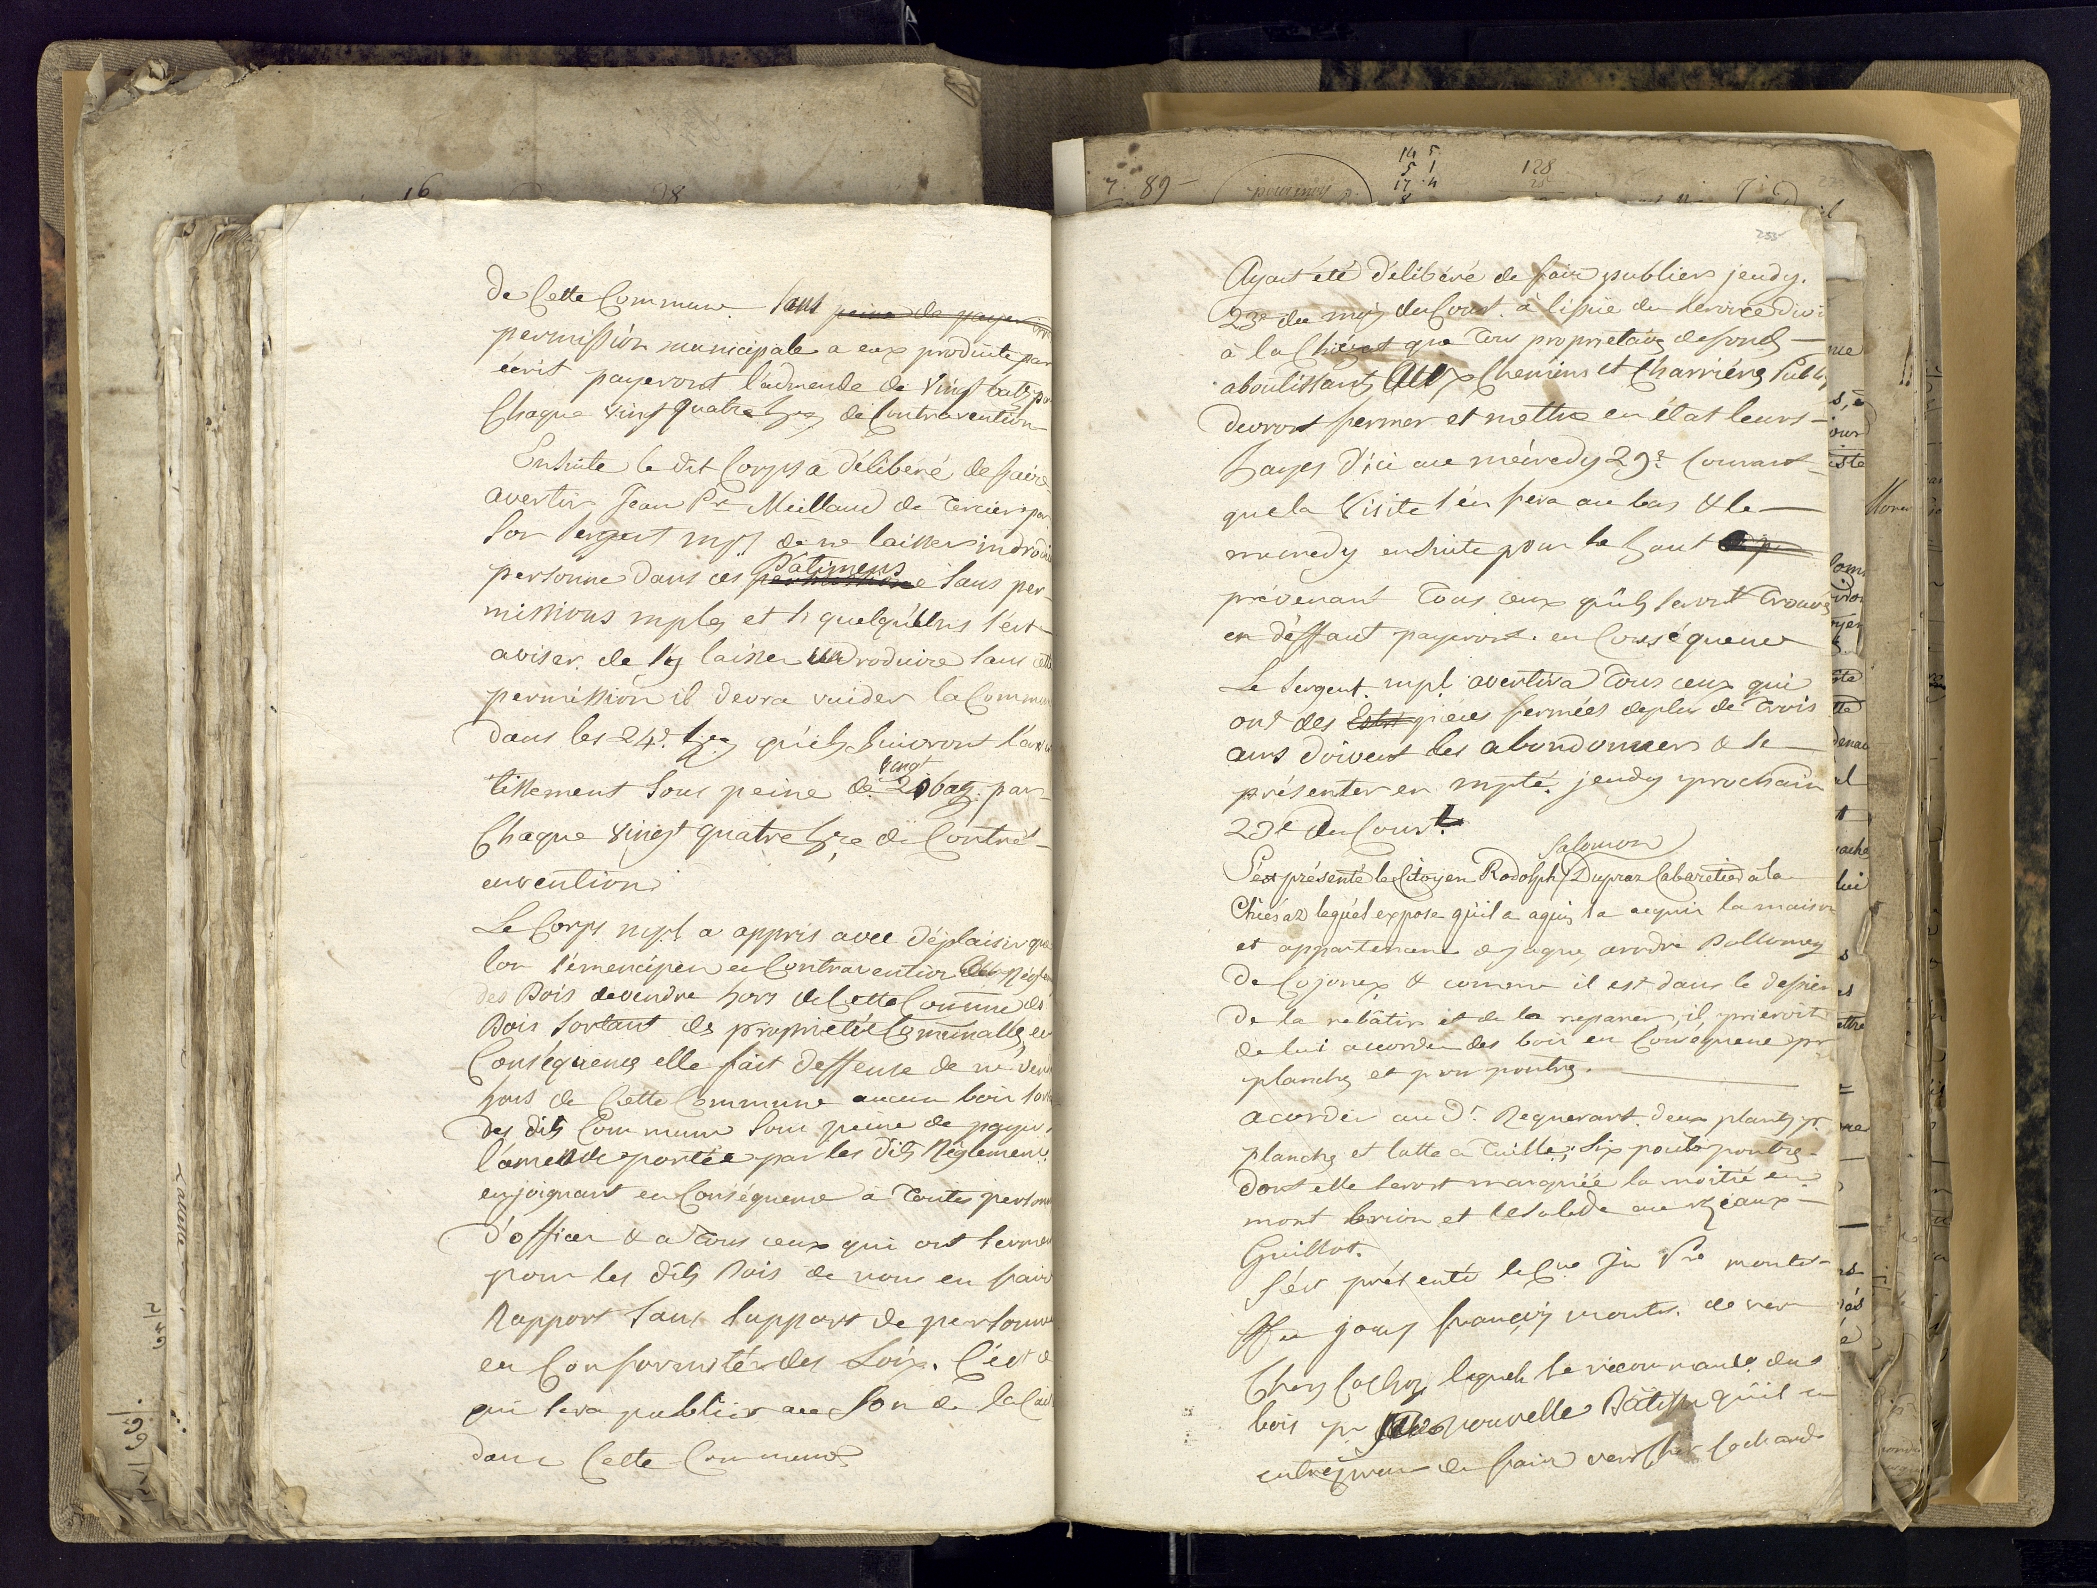 de Cette Commune. sans peine de payer
permission municipale a eux produite par
écrit payeront l'admende de Vingt batz pr
Chaque vingt quatre hres de Contravention
Ensuite le dit Corps a délibéré de faire
avertir Jean Pre Meilland de Tercier par
son sergent mpl de ne laisser introduire
personne dans ces Batimens sans per-
missions mples et si quelqu'uns s'est
aviser de s'y laisser introduire sans cette
permission il devra vuider la Commune
dans les 24e hres qu'ils suivront l'aver
tissement sous peine de vingt 20 batz par
Chaque vingt quatre hre de Contre-
envention
Le Corps mpl a appris avec déplaisir que
lon s'émencipen en Contravention des Réglemens
des Bois de vendre hors de Cette Comune des
Bois sortant des propriétés Comunalles, en
Conséquence elle fait deffense de ne vendre
hors de Cette Commune aucun bois sortant
des dits Commune sous peine de payer
l'amende portée par les dits Réglemens
enjoignant en Conséquence à toutes personnes
d'officer & a tous ceux qui ont serment
pour les dits Bois de nous en faire
Rapport sans support de personne
en Conformitér des Loix. C'est ce
qui sera publier au son de la Caisse
dans Cette Commune
235
Ayant été délibéré de faire publier jeudy.
23e du mois du Court. à l'issue du service divin
à la Chiésat que tous propriétaires de fonds
aboutissant aux Chemins et Charrières Publics
devront fermer et mettre en état leurs
hayes d'ici au mécredy 29e Courant
que la Visite s'en fera au bas & le
mécredy ensuite pour le haut
prévenant tous ceux qu'ils seront trouvés
en déffaut payeront en Conséquence
Le sergent mpl avertira tous ceux qui
ont des Estr pièces fermées deplus de trois
ans doivent les abandonner & se
présenter en mpté jeudy prochain
23e du Court
S'est présenté le Citoyen Rodolph Salomon Dupraz Cabaretier a la
Chiésaz lequel expose qu'il a aquis la maison
et appartenance de Jaques André Ballomey
de Cojonex & comme il est dans le dessein
de la rebâtir et de la reparer, il prieroit
de lui accorder des bois en Conséquence pr
planches et pour poutres.
acorder au dt Requerant deux plantes pr
planches et latte a tuille, six pour poutres
dont elle seront marquée la moitié en
mont
Guillot.
S'est présenté le Cne Jn Pre montet
ffeu François montet. de ver
Chez Cochoz, lequel se recommande des
bois pr une nouvelle Bâtisse qu'il a
entreprise de faire vers Chez Cochard